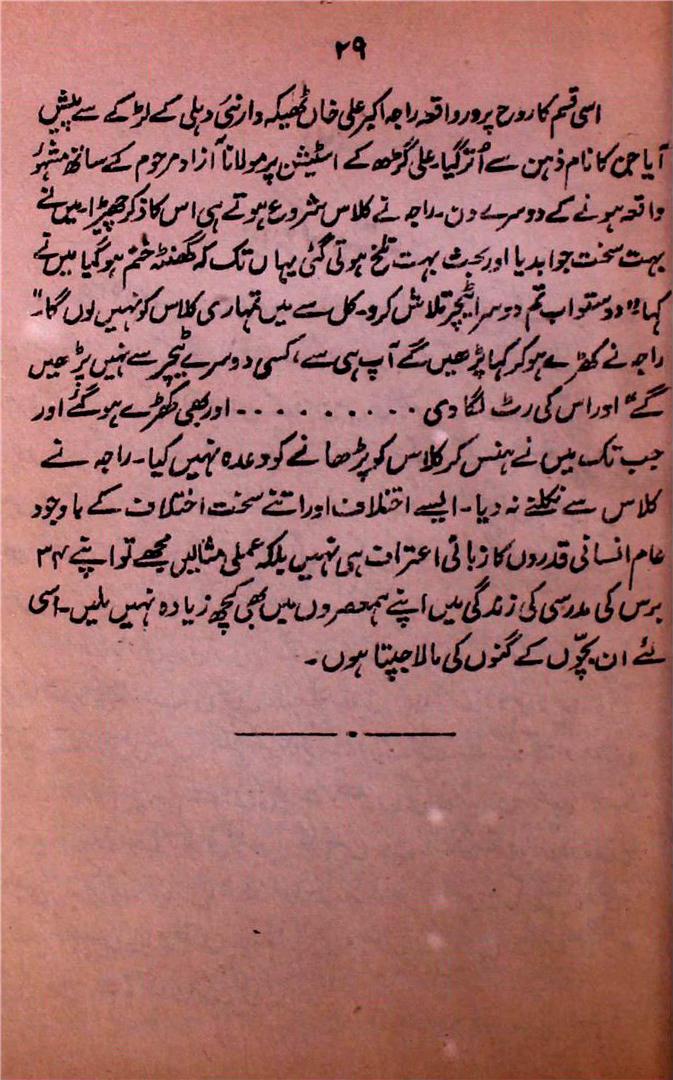 ۲۹
اسی قسم کا روح پرور واقعہ راجہ اکبر علی خاں ٹھیکہ دار نئی دہلی کے لڑکے سے پیش
آیا جن کا نام ذہن سے اُتر گیا۔ علی گڑھ کے اسٹیشن پر مولانا آزاد مرحوم کے ساتھ مشہور
واقعہ ہونے کے دوسرے دن۔ راجہ نے کلاس شروع ہوتے ہی اس کا ذکر چھیڑا۔ میں نے
بہت سخت جواب دیا اور بحث بہت تلخ ہوتی گئی یہاں تک کہ گھنٹہ ختم ہو گیا میں نے
کہا "دوستو اب تم دوسرا ٹیچر تلاش کرو۔ کل سے میں تمہاری کلاس کو نہیں لوں گا۔"
راجہ نے کھڑے ہو کر کہا پڑھیں گے آپ ہی سے، کسی دوسرے ٹیچر سے نہیں پڑھیں
گے" اور اس کی رٹ لگا دی ۔ ۔ ۔ ۔ ۔ ۔ ۔ ۔ ۔ اور بھی کھڑے ہو گئے اور
جب تک میں نے ہنس کر کلاس کو پڑھانے کو وعدہ نہیں کیا۔ راجہ نے
کلاس سے نکلنے نہ دیا۔ ایسے اختلاف اور اتنے سخت اختلاف کے باوجود
عام انسانی قدروں کا زبانی اعتراف ہی نہیں بلکہ عملی مثالیں مجھے تو اپنے ۳۴
برس کی مدرسی کی زندگی میں اپنے ہمعصروں میں بھی کچھ زیادہ نہیں ملیں۔ اسی
لئے ان بچّوں کے گنوں کی مالا جپتا ہوں۔